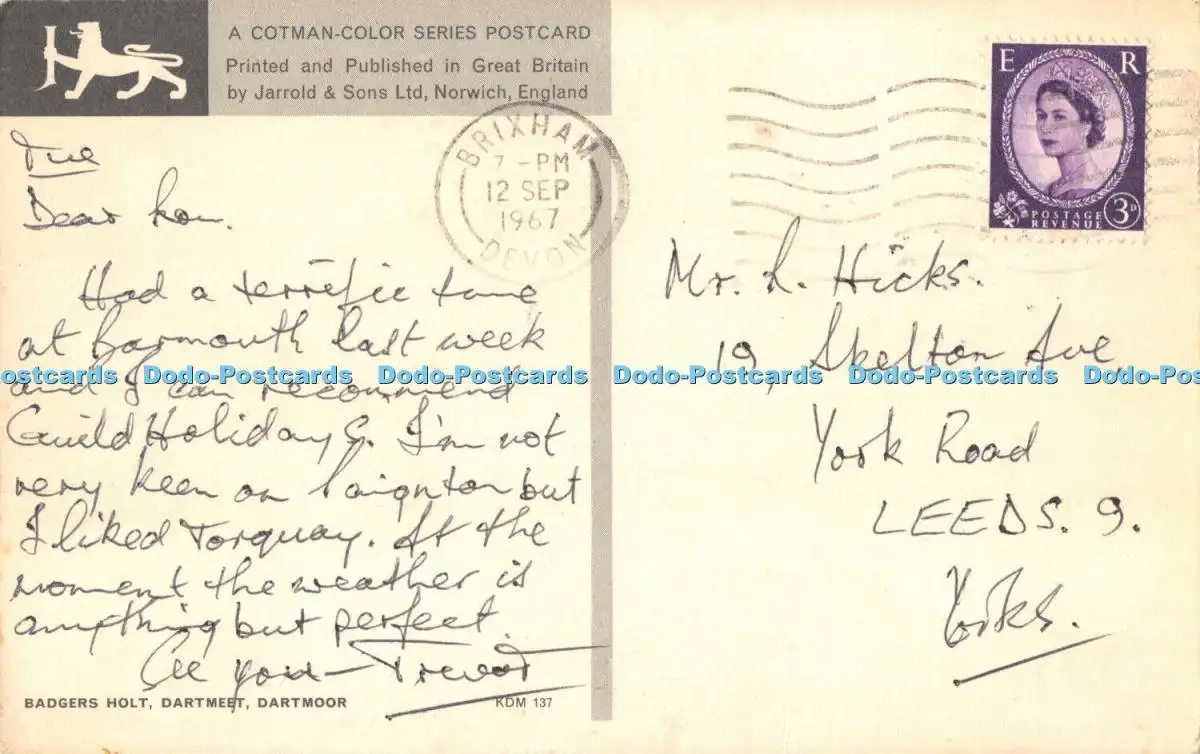 A COTMAN-COLOR SERIES POSTCARD
Printed and Published in Great Britain
by Jarrold & Sons Ltd, Norwich, England
BRIXHAM
7 - PM
12 SEP
1967
DEVON
E R
POSTAGE
REVENUE
3D
Tue
Dear Ron.
Had a terrific time
at Barmouth last week
and I can recommend
Guild Holidays. I'm not
very keen on Paignton but
I liked Torquay. At the
moment the weather is
anything but perfect.
See you - Trevor
Mr. R. Hicks.
19, Skelton Ave
York Road
LEEDS. 9.
Yorks.
ostcards Dodo-Postcards Dodo-Postcards Dodo-Postcards Dodo-Postcards Dodo-Pos
BADGERS HOLT, DARTMEET, DARTMOOR
KDM 137